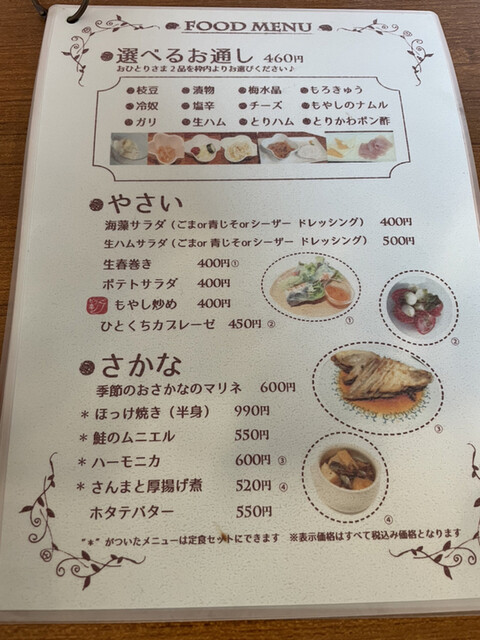 FOOD MENU
選べるお通し 460円
おひとりさま2品を枠内よりお選びください♪
●枝豆 ●漬物 ●梅水晶 ●もろきゅう
●冷奴 ●塩辛 ●チーズ ●もやしのナムル
●ガリ ●生ハム ●とりハム ●とりかわポン酢
やさい
海藻サラダ（ごまor青じそorシーザー ドレッシング） 400円
生ハムサラダ（ごまor青じそorシーザー ドレッシング） 500円
生春巻き 400円①
ポテトサラダ 400円
もやし炒め 400円
ひとくちカプレーゼ 450円 ②
①
②
さかな
季節のおさかなのマリネ 600円
＊ほっけ焼き（半身） 990円
＊鮭のムニエル 550円
＊ハーモニカ 600円 ③
＊さんまと厚揚げ煮 520円 ④
ホタテバター 550円
③
④
"＊" がついたメニューは定食セットにできます ※表示価格はすべて税込み価格となります